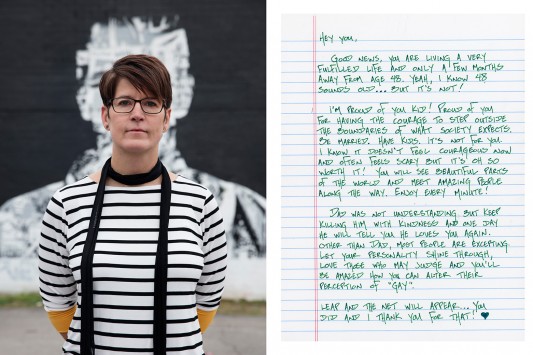 HEY YOU,
GOOD NEWS, YOU ARE LIVING A VERY
FULFILLED LIFE AND ONLY A FEW MONTHS
AWAY FROM AGE 48. YEAH, I KNOW 48
SOUNDS OLD... BUT IT'S NOT!
I'M PROUD OF YOU KID! PROUD OF YOU
FOR HAVING THE COURAGE TO STEP OUTSIDE
THE BOUNDARIES OF WHAT SOCIETY EXPECTS.
BE MARRIED. HAVE KIDS. IT'S NOT FOR YOU
I KNOW IT DOESN'T FEEL COURAGEOUS NOW
AND OFTEN FEELS SCARY BUT IT'S OH SO
WORTH IT! YOU WILL SEE BEAUTIFUL PARTS
OF THE WORLD AND MEET AMAZING PEOPLE
ALONG THE WAY. ENJOY EVERY MINUTE!
DAD WAS NOT UNDERSTANDING BUT KEEP
KILLING HIM WITH KINDNESS AND ONE DAY
HE WILL TELL YOU HE LOVES YOU AGAIN.
OTHER THAN DAD, MOST PEOPLE ARE EXCEPTING
LET YOUR PERSONALITY SHINE THROUGH,
LOVE THOSE WHO MAY JUDGE AND YOU'LL
BE AMAZED HOW YOU CAN ALTER THEIR
PERCEPTION OF "GAY".
LEAP AND THE NET WILL APPEAR... YOU
DID AND I THANK YOU FOR THAT!! ♥